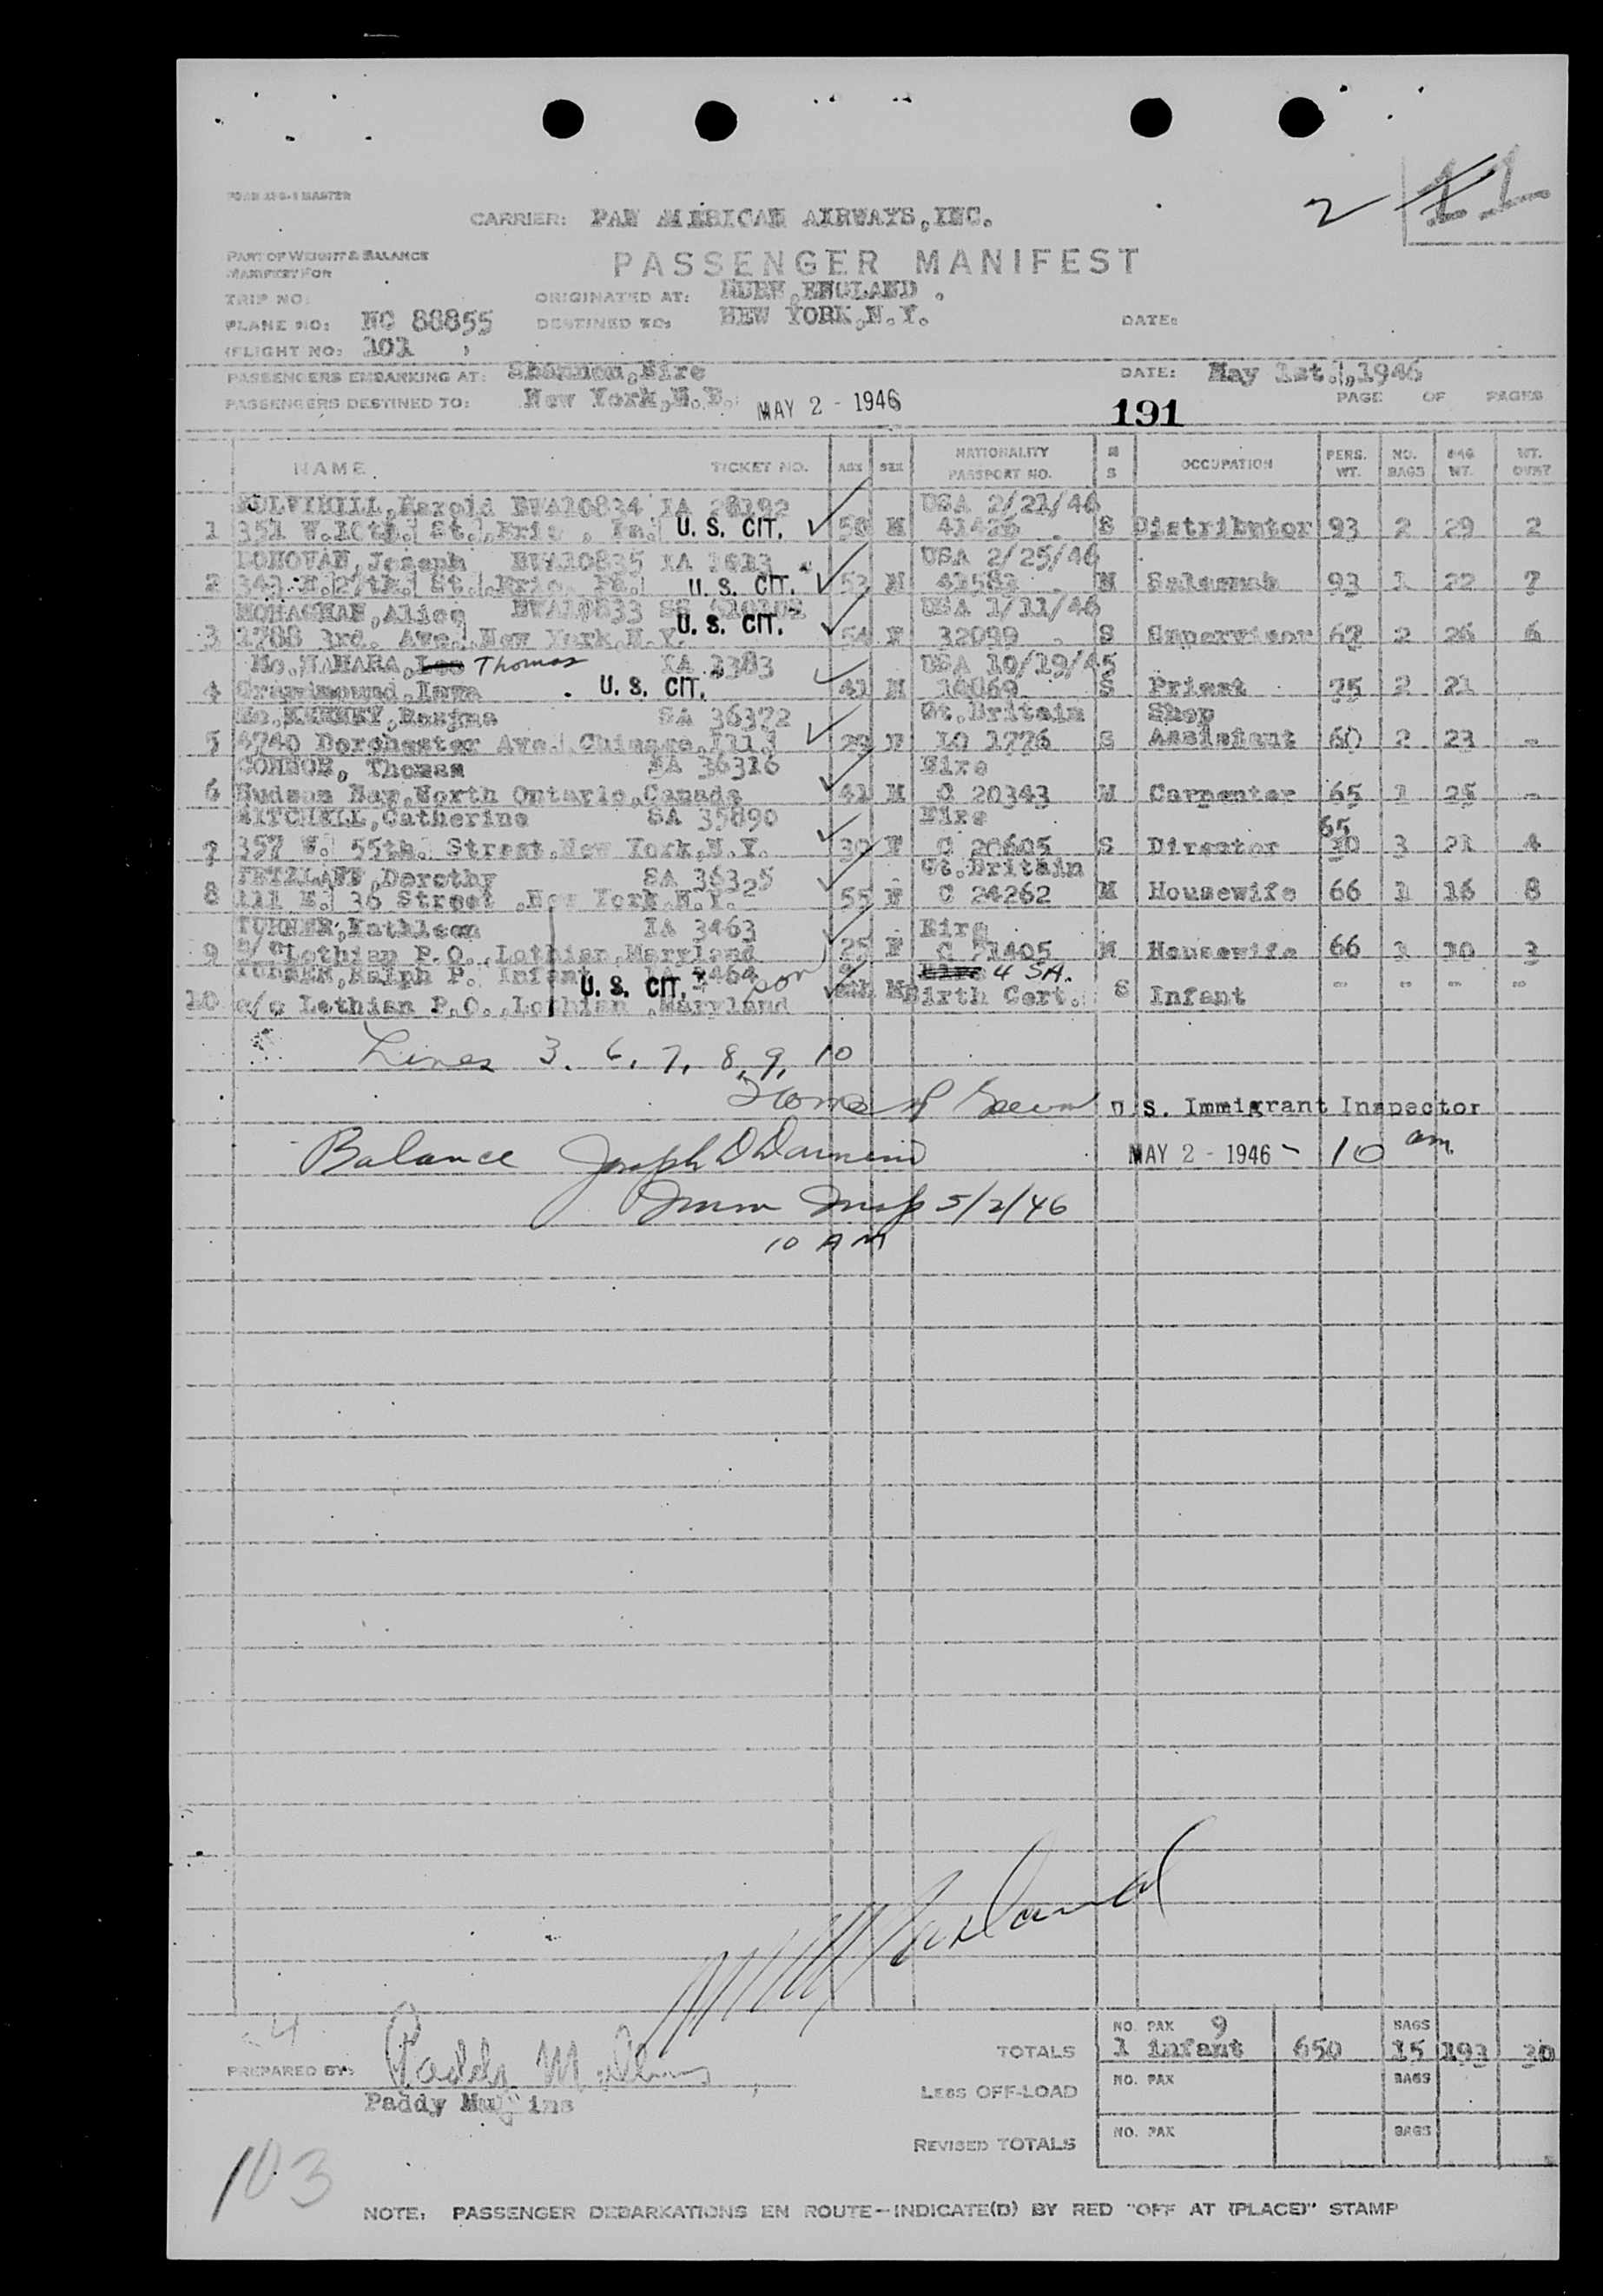 2 11
FORM MASTER
CARRIER: PAN AMERICAN AIRWAYS, INC.
PART OF WEIGHT & BALANCE
MANIFEST FOR
PASSENGER MANIFEST
TRIP NO:
ORIGINATED AT: HURN, ENGLAND .
PLANE NO: NC 88855
DESTINED TO: NEW YORK, N.Y.
DATE:
(FLIGHT NO: 101 )
PASSENGERS EMBARKING AT: Shannon, Eire
DATE: May 1st., 1946
PASSENGERS DESTINED TO: New York, N.Y. MAY 2 - 1946
191
PAGE OF PAGES
NAME TICKET NO. AGE SEX NATIONALITY PASSPORT NO. M S OCCUPATION PERS. WT. NO. BAGS BAG WT. WT. OVR?
MULVIHILL, Harold IA 28192 USA 2/21/46
1 351 W. 10th. St., Erie, Pa. U. S. CIT. 50 M 41426 S Distributor 93 2 29 2
DONOVAN, Joseph USA 2/25/46
2 St., Erie, Pa. U. S. CIT. 53 M 41583 M Salesman 93 1 22 7
MONAGHAN, Alice USA 1/11/46
3 1788 3rd. Ave., New York, N.Y. U. S. CIT. 54 F 32099 S Supervisor 67 2 26 6
Mc.NAMARA, Leo Thomas IA 3383 USA 10/19/45
4 Iowa U. S. CIT. 41 M 14069 S Priest 75 2 21
SA 36372 Gt. Britain Shop
5 4740 Dorchester Ave. Chicago, Ill. 29 F LO 1776 S Assistant 60 2 23 -
CONNOR, Thomas SA 36316 Eire
6 Hudson Bay, North Ontario, Canada 41 M C 20343 M Carpenter 65 1 25 -
MITCHELL, Catherine SA 35890 Eire 65
7 357 W. 55th. Street, New York, N.Y. 30 F C 20605 S Director 30 3 21 4
Dorothy SA 36325 Gt. Britain
8 111 E. 36 Street, New York, N.Y. 55 F C 24262 M Housewife 66 1 16 8
TURNER, Kathleen IA 3463 Eire
9 c/o Lothian P.O., Lothian, Maryland 25 F C 21405 M Housewife 66 1 10 3
TURNER, Ralph P. Infant IA 3464 son Eire 4 SA.
10 c/o Lothian P.O., Lothian, Maryland U. S. CIT. M Birth Cert. S Infant - - - -
Lines 3. 6, 7, 8, 9, 10
U.S. Immigrant Inspector
Balance Joseph D
MAY 2 - 1946 - 10 am.
Imm Insp 5/2/46
10 AM
PREPARED BY:
Paddy Mullins
TOTALS NO. PAX 9 1 infant 650 BAGS 15 193 30
LESS OFF-LOAD NO. PAX BAGS
REVISED TOTALS NO. PAX BAGS
103
NOTE: PASSENGER DEBARKATIONS EN ROUTE—INDICATE(D) BY RED "OFF AT (PLACE)" STAMP